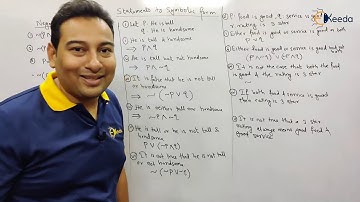 Statements to Symbolic form
① Let P: He is tall
q: He is handsome
① He is tall and handsome
⇒ P∧q
② He is tall but not handsome
⇒ P∧~q
③ It is false that he is not tall
or handsome
⇒ ~(~P∨q)
④ He is neither tall nor handsome
⇒ ~P∧~q
⑤ He is tall or he is not tall &
handsome
P∨(~P∧q)
⑥ It is not true that he is not tall
or not handsome
~(~P∨~q)
P: Food is good, q: service is
r: rating is 3 star
① Either food is good or service is good or both
P∨q
② Either food is good or service is good but not
(P∧~q)∨(~P∧q)
It is not the case that both the
food is good & the rating is 3 star
If both food & service is good
then rating is 3 star
It is not true that a 3 star
rating always means good food &
good service
Ekeeda